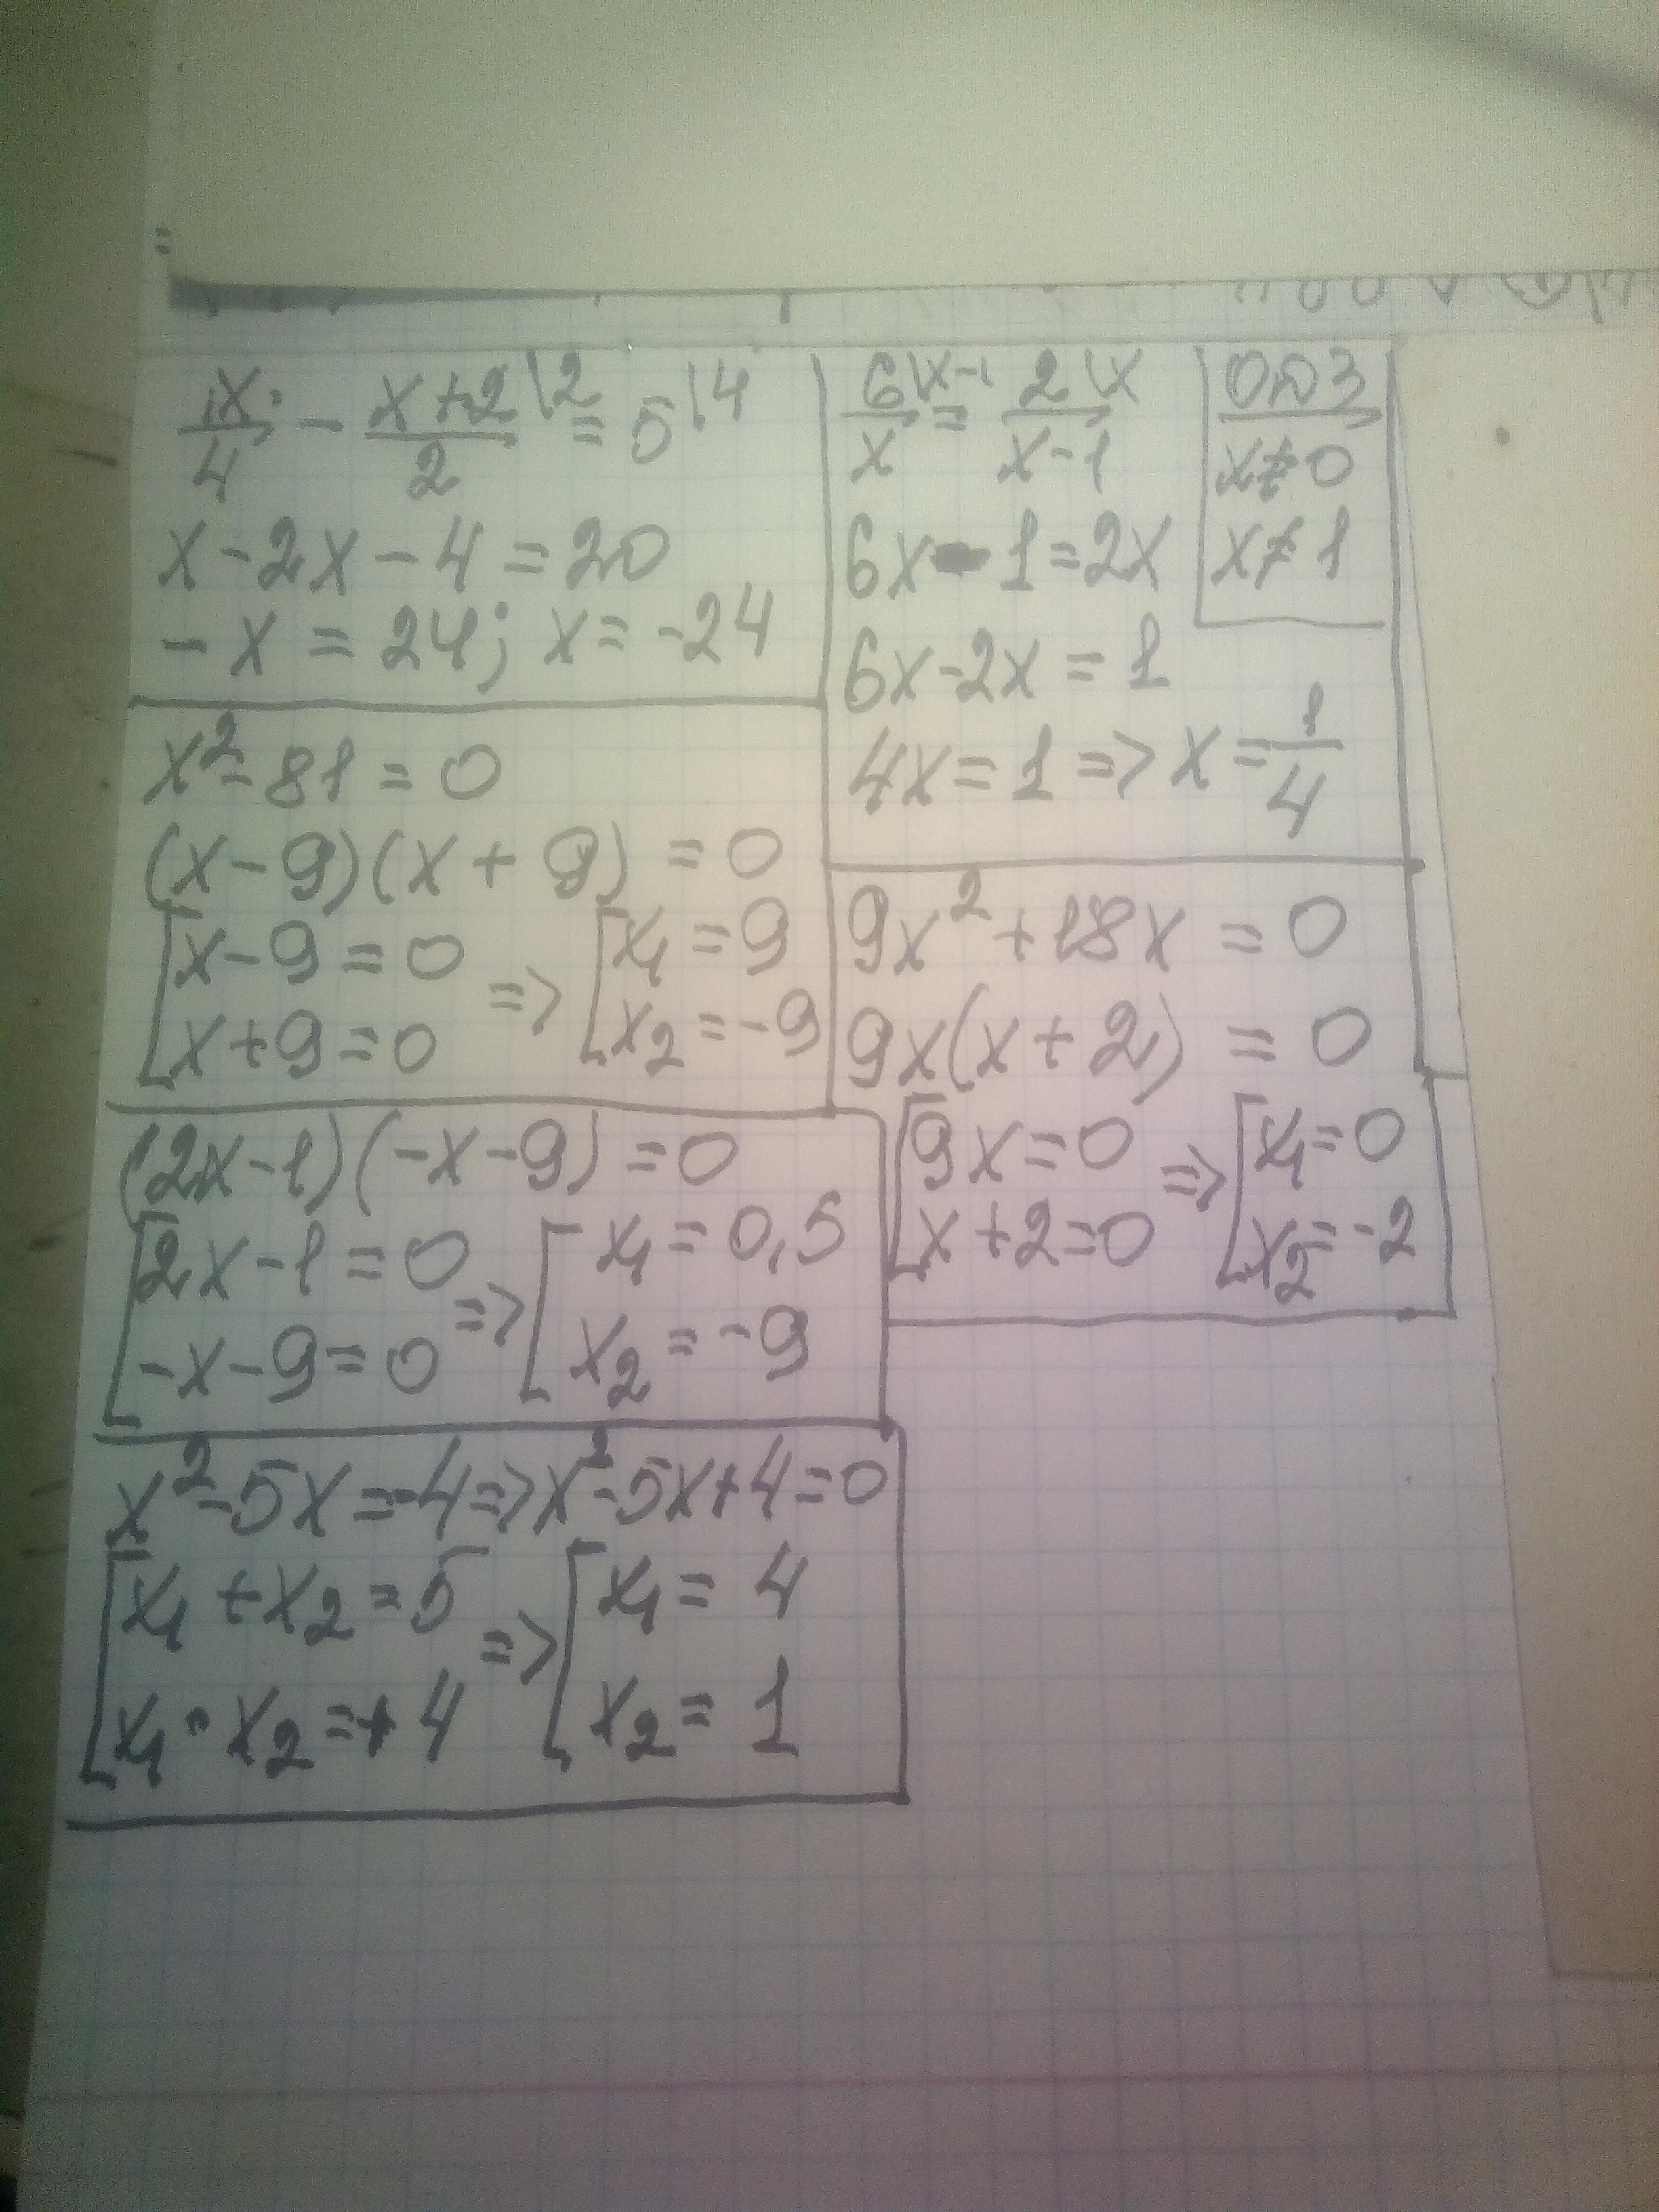 x/4 - x+2\2/2 = 5\4
x-2x-4=20
-x=24; x=-24
6\x-1/x = 2\x/x-1
ОДЗ
x≠0
x≠1
6x-1=2x
6x-2x=1
4x=1=>x=1/4
x²-81=0
(x-9)(x+9)=0
[x-9=0 => [x₁=9
x+9=0 x₂=-9
9x²+18x=0
9x(x+2)=0
[9x=0 => [x₁=0
x+2=0 x₂=-2
(2x-1)(-x-9)=0
[2x-1=0 => [x₁=0,5
-x-9=0 x₂=-9
x²-5x=-4=>x²-5x+4=0
[x₁+x₂=5 => [x₁=4
x₁·x₂=+4 x₂=1